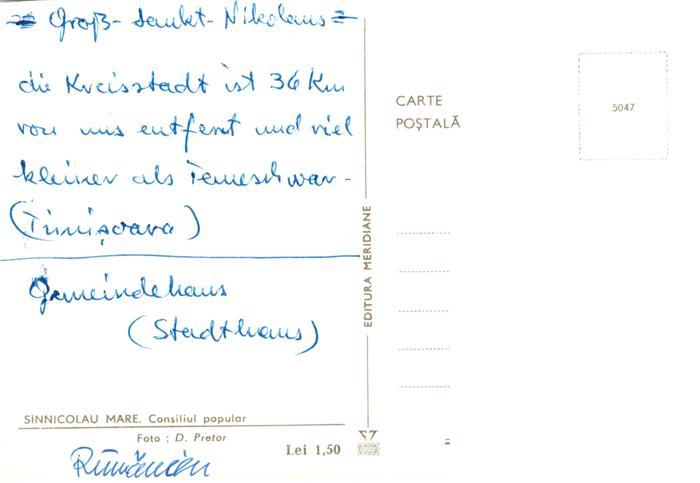 = Groß-Sankt-Nikolaus =
die Kreisstadt ist 36 Km
von uns entfernt und viel
kleiner als Temeschwar-
(Timişoara)
Gemeindehaus
(Stadthaus)
SÎNNICOLAU MARE. Consiliul popular
Foto : D. Pretor
Lei 1,50
Rumänien
EDITURA MERIDIANE
CARTE
POŞTALĂ
5047